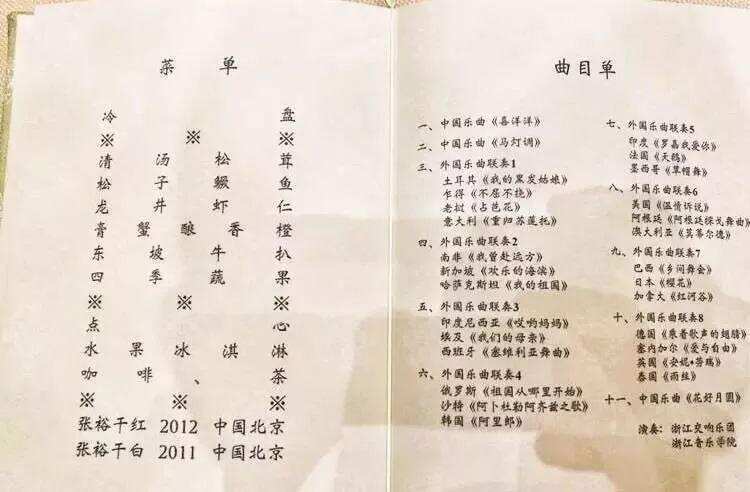 菜 单
冷 盘
※ ※ ※
清 汤 松 茸
松 子 鳜 鱼
龙 井 虾 仁
膏 蟹 酿 香 橙
东 坡 牛 扒
四 季 蔬 果
※ ※ ※
点 心
水 果 冰 淇 淋
咖 啡 、 茶
※ ※ ※ ※
张裕干红 2012 中国北京
张裕干白 2011 中国北京
曲目单
一、中国乐曲《喜洋洋》
二、中国乐曲《马灯调》
三、外国乐曲联奏1
土耳其《我的黑发姑娘》
乍得《不屈不挠》
老挝《占芭花》
意大利《重归苏莲托》
四、外国乐曲联奏2
南非《我曾赴远方》
新加坡《欢乐的海滨》
哈萨克斯坦《我的祖国》
五、外国乐曲联奏3
印度尼西亚《哎哟妈妈》
埃及《我们的母亲》
西班牙《塞维利亚舞曲》
六、外国乐曲联奏4
俄罗斯《祖国从哪里开始》
沙特《阿卜杜勒阿齐兹之歌》
韩国《阿里郎》
七、外国乐曲联奏5
印度《罗嘉我爱你》
法国《天鹅》
墨西哥《草帽舞》
八、外国乐曲联奏6
美国《温情诉说》
阿根廷《阿根廷探戈舞曲》
澳大利亚《莫蒂尔德》
九、外国乐曲联奏7
巴西《乡间舞会》
日本《樱花》
加拿大《红河谷》
十、外国乐曲联奏8
德国《乘着歌声的翅膀》
塞内加尔《爱与自由》
英国《安妮•劳瑞》
泰国《雨丝》
十一、中国乐曲《花好月圆》
演奏：浙江交响乐团
浙江音乐学院